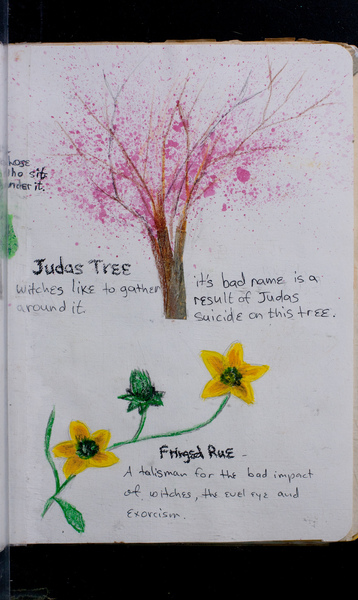 whose
who sit
under it.
Judas Tree
witches like to gather
around it.
it's bad name is a
result of Judas
suicide on this tree.
Fringed Rue -
A talisman for the bad impact
of witches, the evel eye and
exorcism.